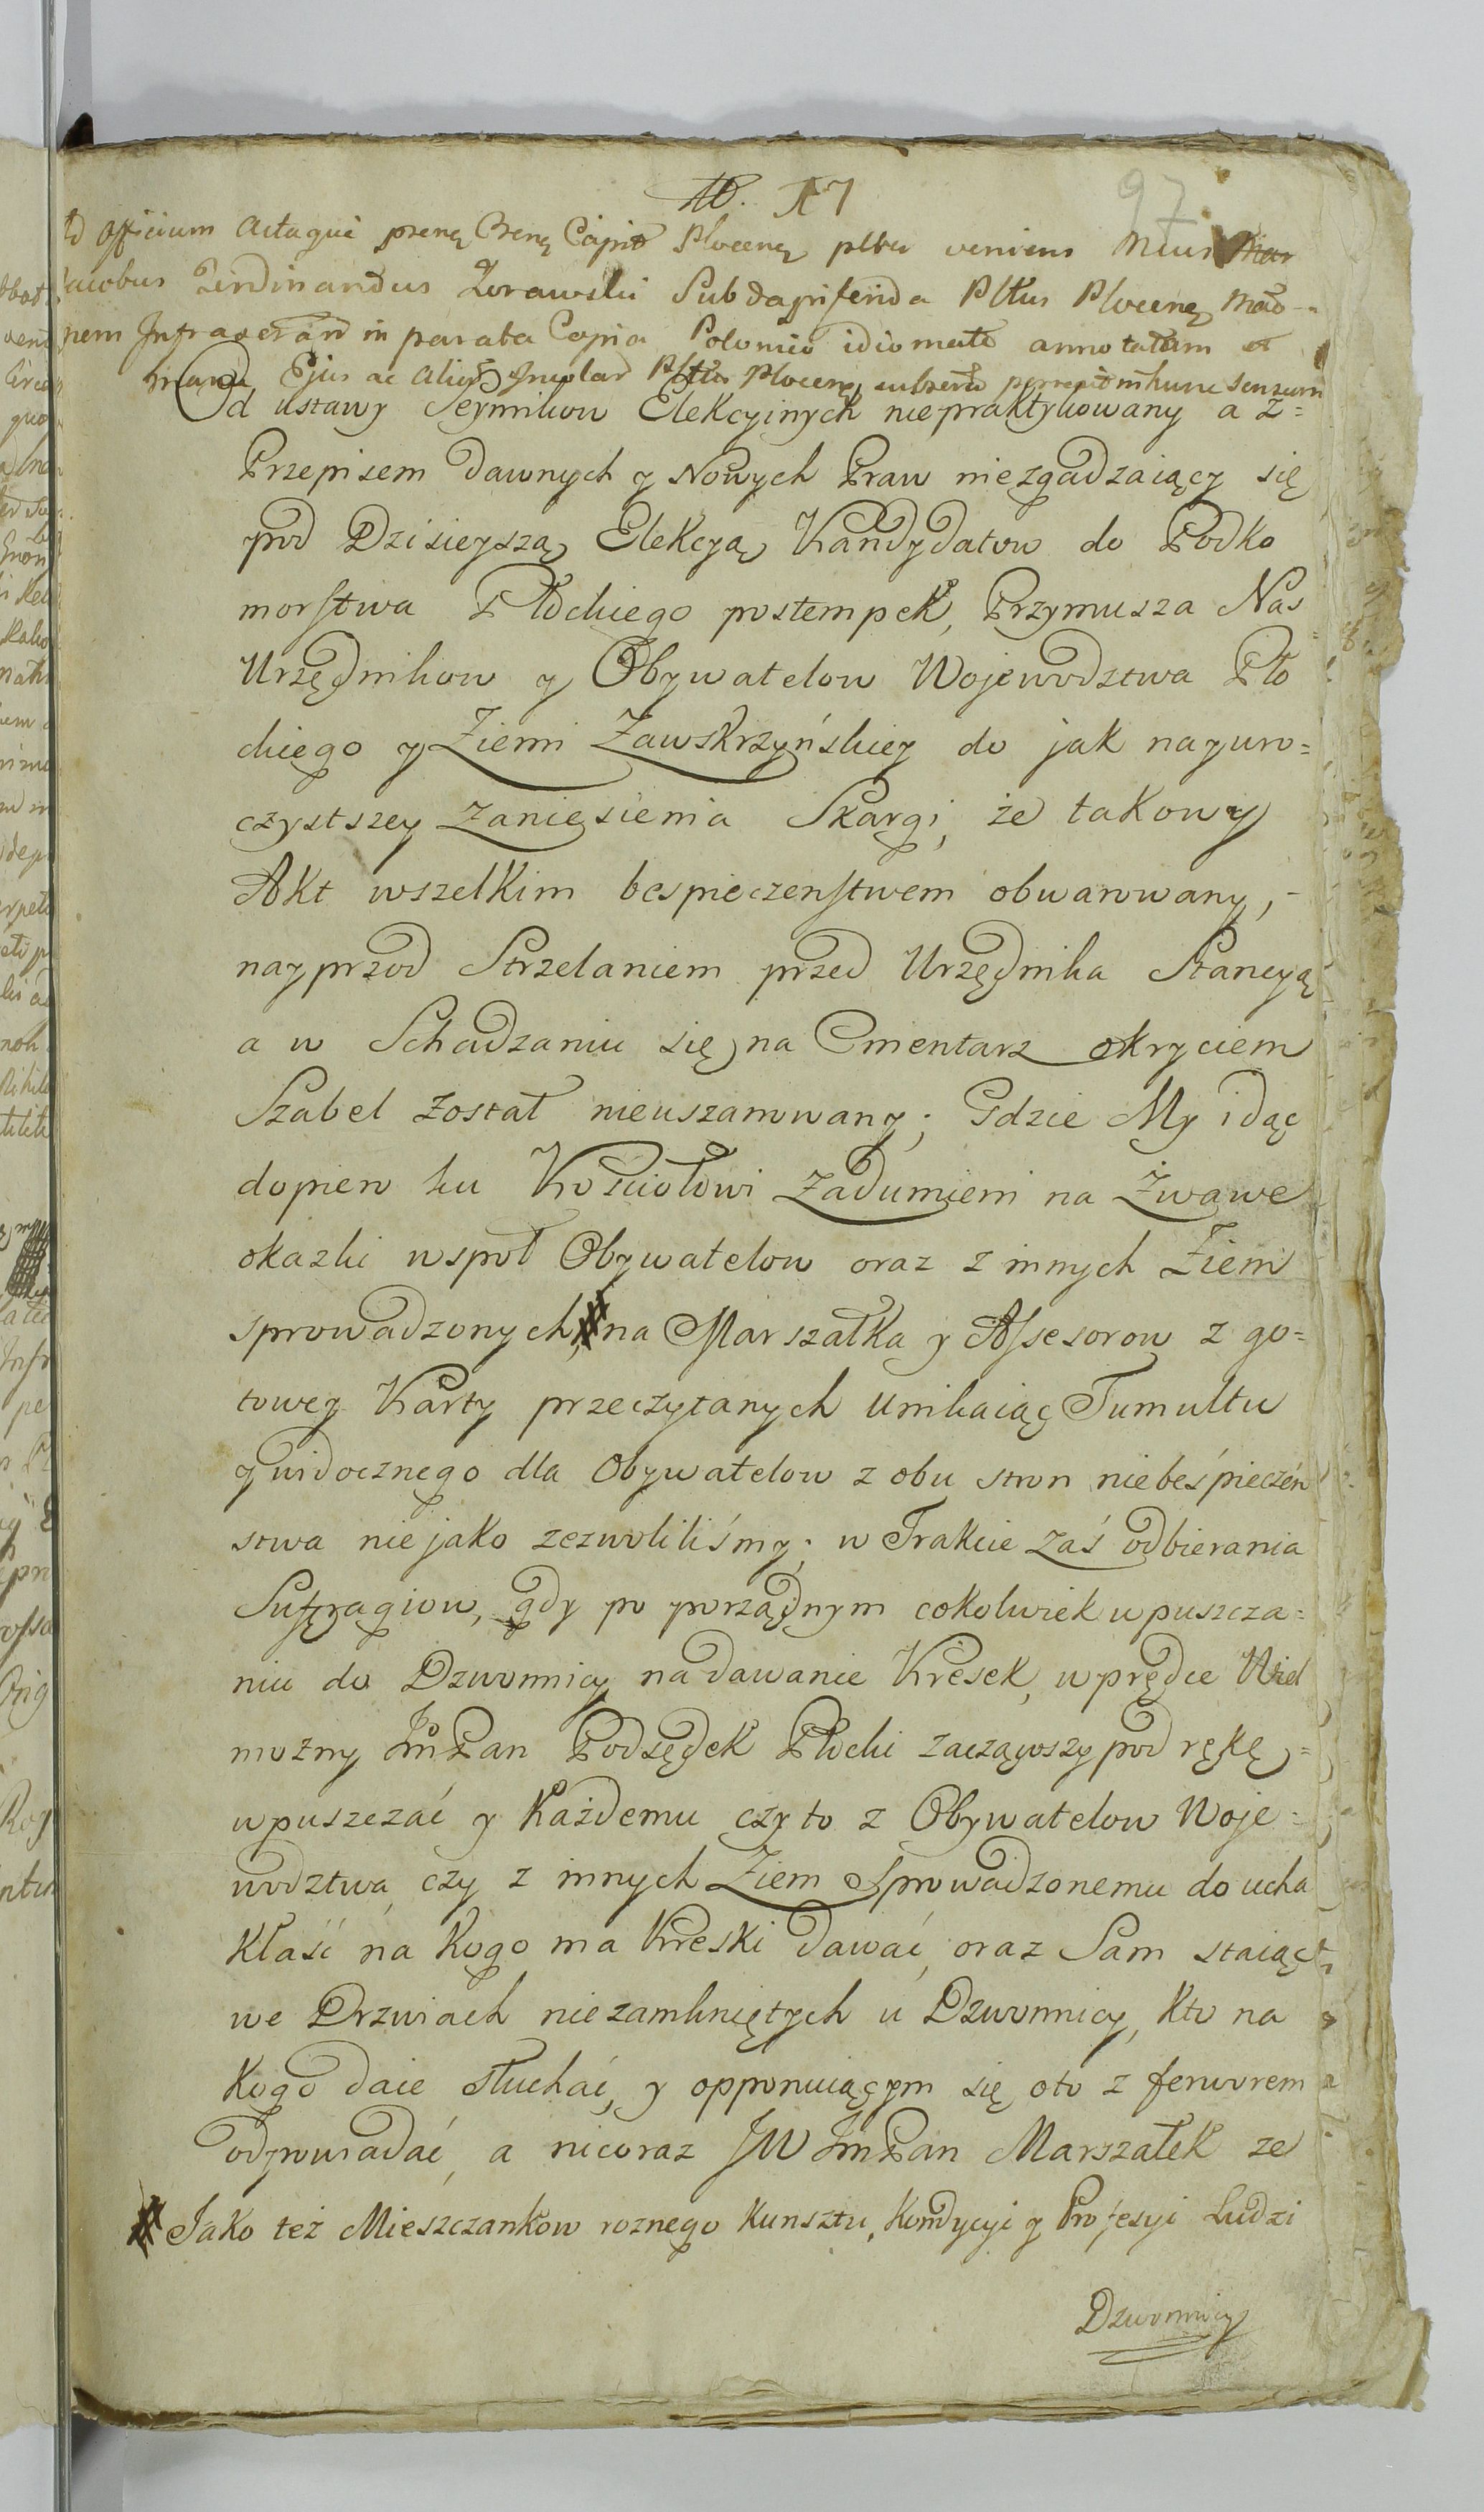 97
Officium Actaque veniens
Jacobus Ferdinandus Zorawski Subdapiferida Pltus Plocen
in parata Copia Polonico idiomate annotatam et
Ejus ac Pltus Plocen subscrō porrexit in hunc sensum
Od ustawy Seymikow Elekcyinych niepraktykowany a z=
Przepisem dawnych y Nowych Praw niezgadzaiący się
pod Dzisieyszą Elekcyą Kandydatow do Podko
morstwa Płockiego postempek, Przymusza Nas
Urzędnikow y Obywatelow Wojewodztwa Pło
ckiego y Ziemi Zawskrzyńskiey do jak nayuro=
czystszey Zaniesienia Skargi, że takowy
Akt wszelkim bespieczenstwem obwarowany,
nayprzod Strzelaniem przed Urzędnika Stancyą
a w Schadzaniu się na Cmentarz okryciem
Szabel został nieuszanowany; Gdzie My idąc
dopiero ku Kościołowi Zadumieni na Żwawe
okazki wspoł Obywatelow oraz z innych Ziem
sprowadzonych, # na Marszałka y Assesorow z go=
towey Karty przeczytanych unikaiąc Tumultu
y widocznego dla Obywatelow z obu stron niebeśpieczeń
stwa niejako zezwoliliśmy; w Trakcie zaś odbierania
Sufragiow, gdy po porządnym cokolwiek wpuszcza=
niu do Dzwonnicy na dawanie Kresek, wprędce Wiel
możny ImPan Podsędek Płocki zacząwszy pod rękę
wpuszczać y Każdemu czy to z Obywatelow Woje=
wodztwa, czy z innych Ziem Sprowadzonemu do ucha
Kłaść na Kogo ma Kreski dawać, oraz Sam staiąc
we Drzwiach niezamkniętych u Dzwonnicy, Kto na
Kogo daie słuchać, y opponuiącym się oto z ferworem
odpowiadać, a nieoraz JW ImPan Marszałek ze
# Jako też Mieszczankow roznego Kunsztu, Kondycyi y Profesyi Ludzi
Dzwonnicy